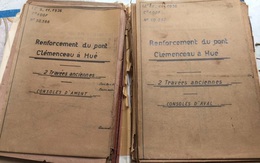 Renforcement du pont
Clémenceau à Hué
2 Travées anciennes
CONSOLES D'AMONT
Renforcement du pont
Clémenceau à Hué
2 Travées anciennes
CONSOLES D'AVAL